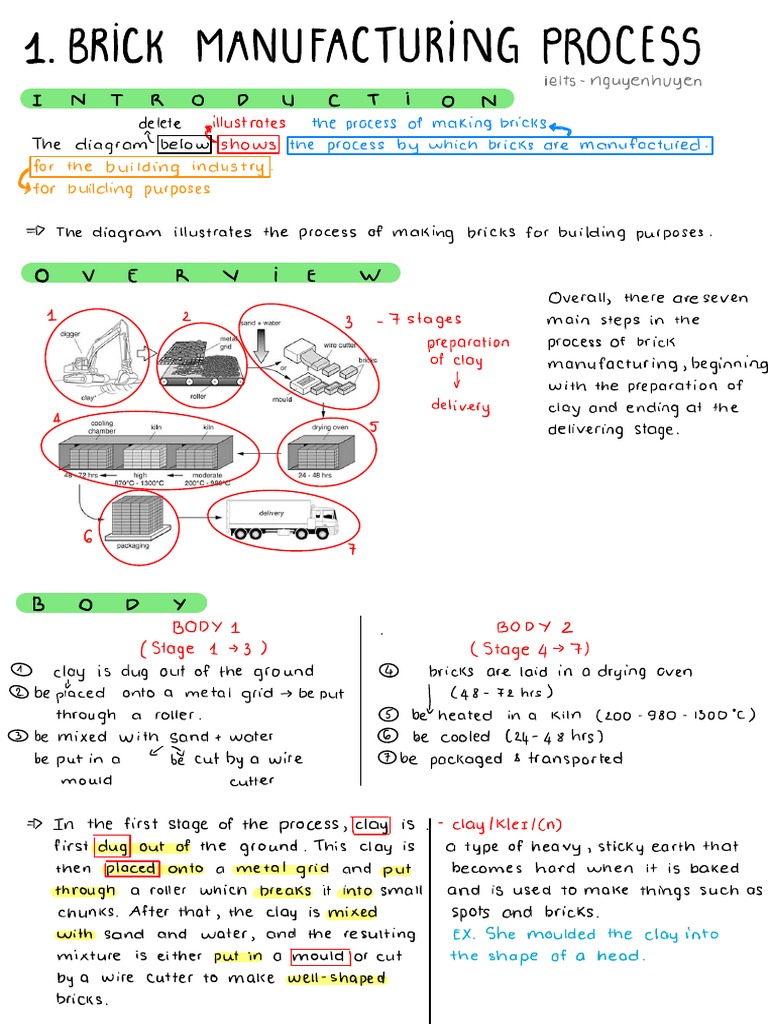 1. BRICK MANUFACTURING PROCESS
ielts - nguyenhuyen
INTRODUCTION
delete illustrates the process of making bricks
The diagram below shows the process by which bricks are manufactured.
for the building industry.
for building purposes
⇒ The diagram illustrates the process of making bricks for building purposes.
OVERVIEW
1
digger
clay
2
metal
grid
roller
sand + water
3
wire cutter
or
bricks
mould
4
cooling
chamber
kiln
kiln
48 - 72 hrs
high
870°C - 1300°C
moderate
200°C - 980°C
5
drying oven
24 - 48 hrs
6
packaging
delivery
7
- 7 stages
preparation
of clay
↓
delivery
Overall, there are seven
main steps in the
process of brick
manufacturing, beginning
with the preparation of
clay and ending at the
delivering stage.
BODY
BODY 1
(Stage 1 → 3)
① clay is dug out of the ground
② be placed onto a metal grid → be put
through a roller.
③ be mixed with sand + water
be put in a be cut by a wire
mould cutter
BODY 2
(Stage 4 → 7)
④ bricks are laid in a drying oven
(48 - 72 hrs)
⑤ be heated in a kiln (200 - 980 - 1300 °C)
⑥ be cooled (24 - 48 hrs)
⑦ be packaged & transported
⇒ In the first stage of the process, clay is
first dug out of the ground. This clay is
then placed onto a metal grid and put
through a roller which breaks it into small
chunks. After that, the clay is mixed
with sand and water, and the resulting
mixture is either put in a mould or cut
by a wire cutter to make well-shaped
bricks.
- clay /kleɪ/ (n)
a type of heavy, sticky earth that
becomes hard when it is baked
and is used to make things such as
spots and bricks.
EX. She moulded the clay into
the shape of a head.